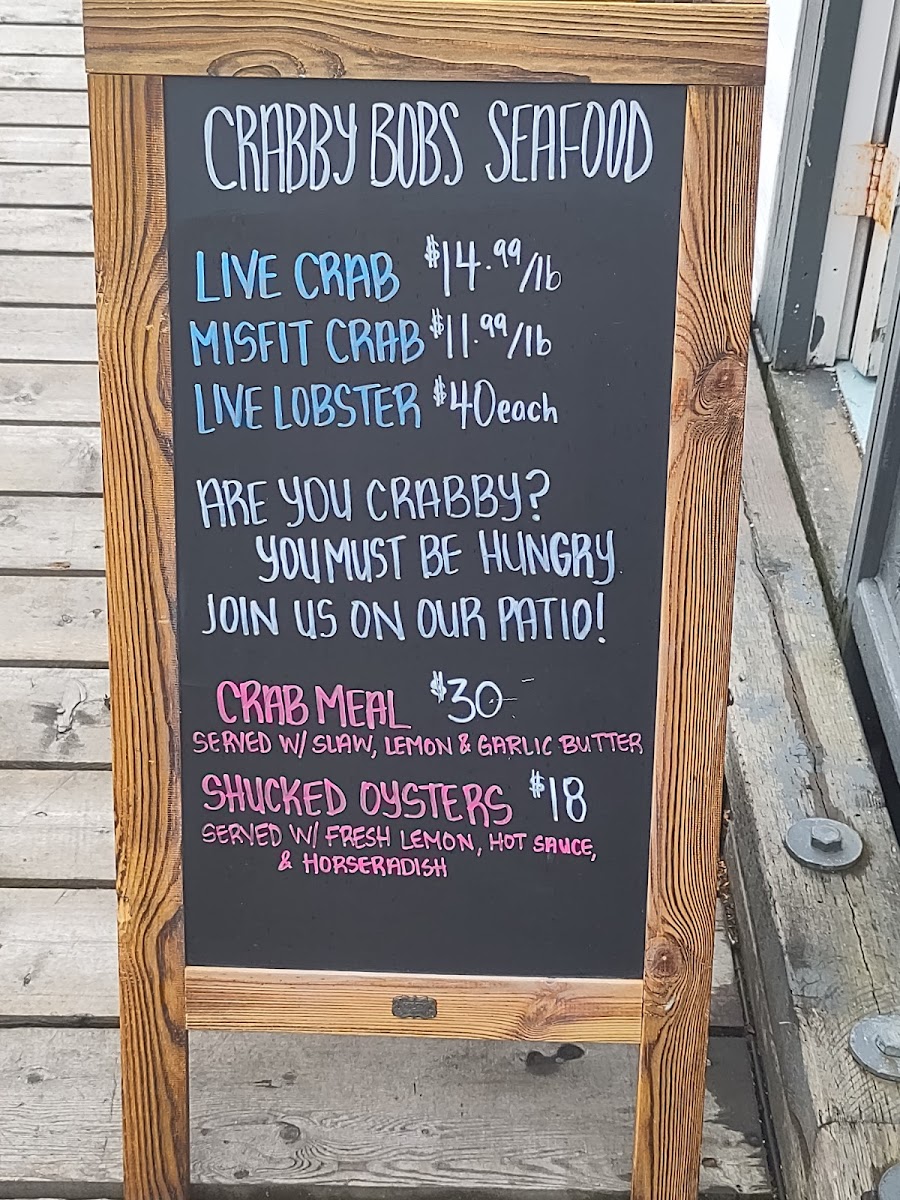 CRABBY BOBS SEAFOOD
LIVE CRAB $14.99/lb
MISFIT CRAB $11.99/lb
LIVE LOBSTER $40 each
ARE YOU CRABBY?
YOU MUST BE HUNGRY
JOIN US ON OUR PATIO!
CRAB MEAL $30
SERVED W/ SLAW, LEMON & GARLIC BUTTER
SHUCKED OYSTERS $18
SERVED W/ FRESH LEMON, HOT SAUCE,
& HORSERADISH